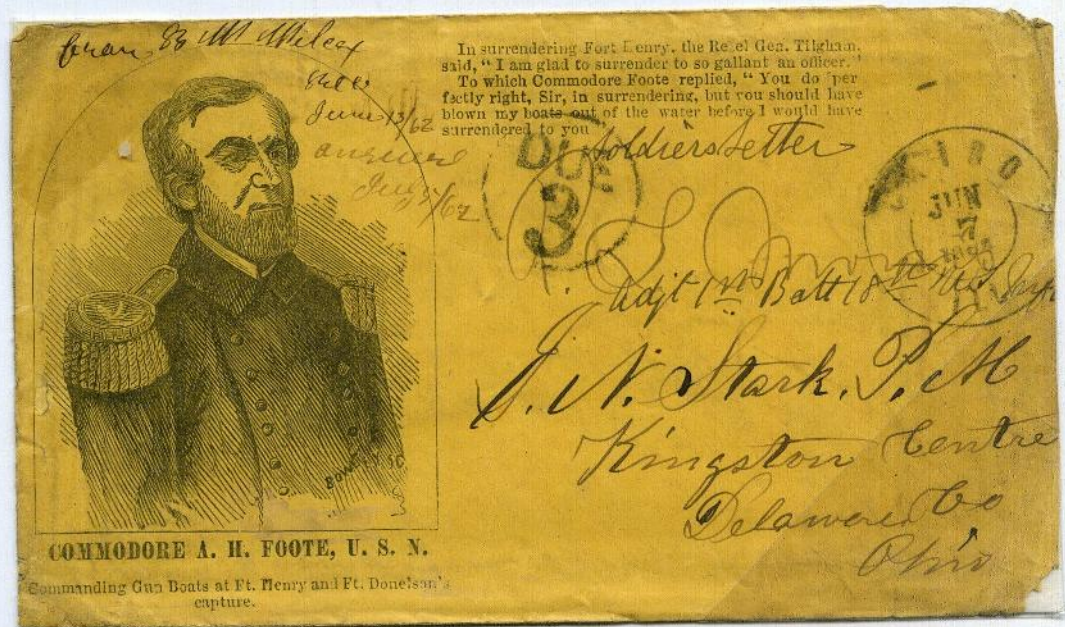 From B M Wilcox
Rec
June 13/62
answered
July 5/62
In surrendering Fort Henry, the Rebel Gen. Tilgham,
said, "I am glad to surrender to so gallant an officer."
To which Commodore Foote replied, "You do per
fectly right, Sir, in surrendering, but you should have
blown my boats out of the water before I would have
surrendered to you
Soldiers Letter
DUE
3
CAIRO
JUN
7
Adjt 1st Batt 18th
J. N. Stark. P. M
Kingston Centre
Delaware Co
Ohio
COMMODORE A. H. FOOTE, U. S. N.
Commanding Gun Boats at Ft. Henry and Ft. Donelson's
capture.